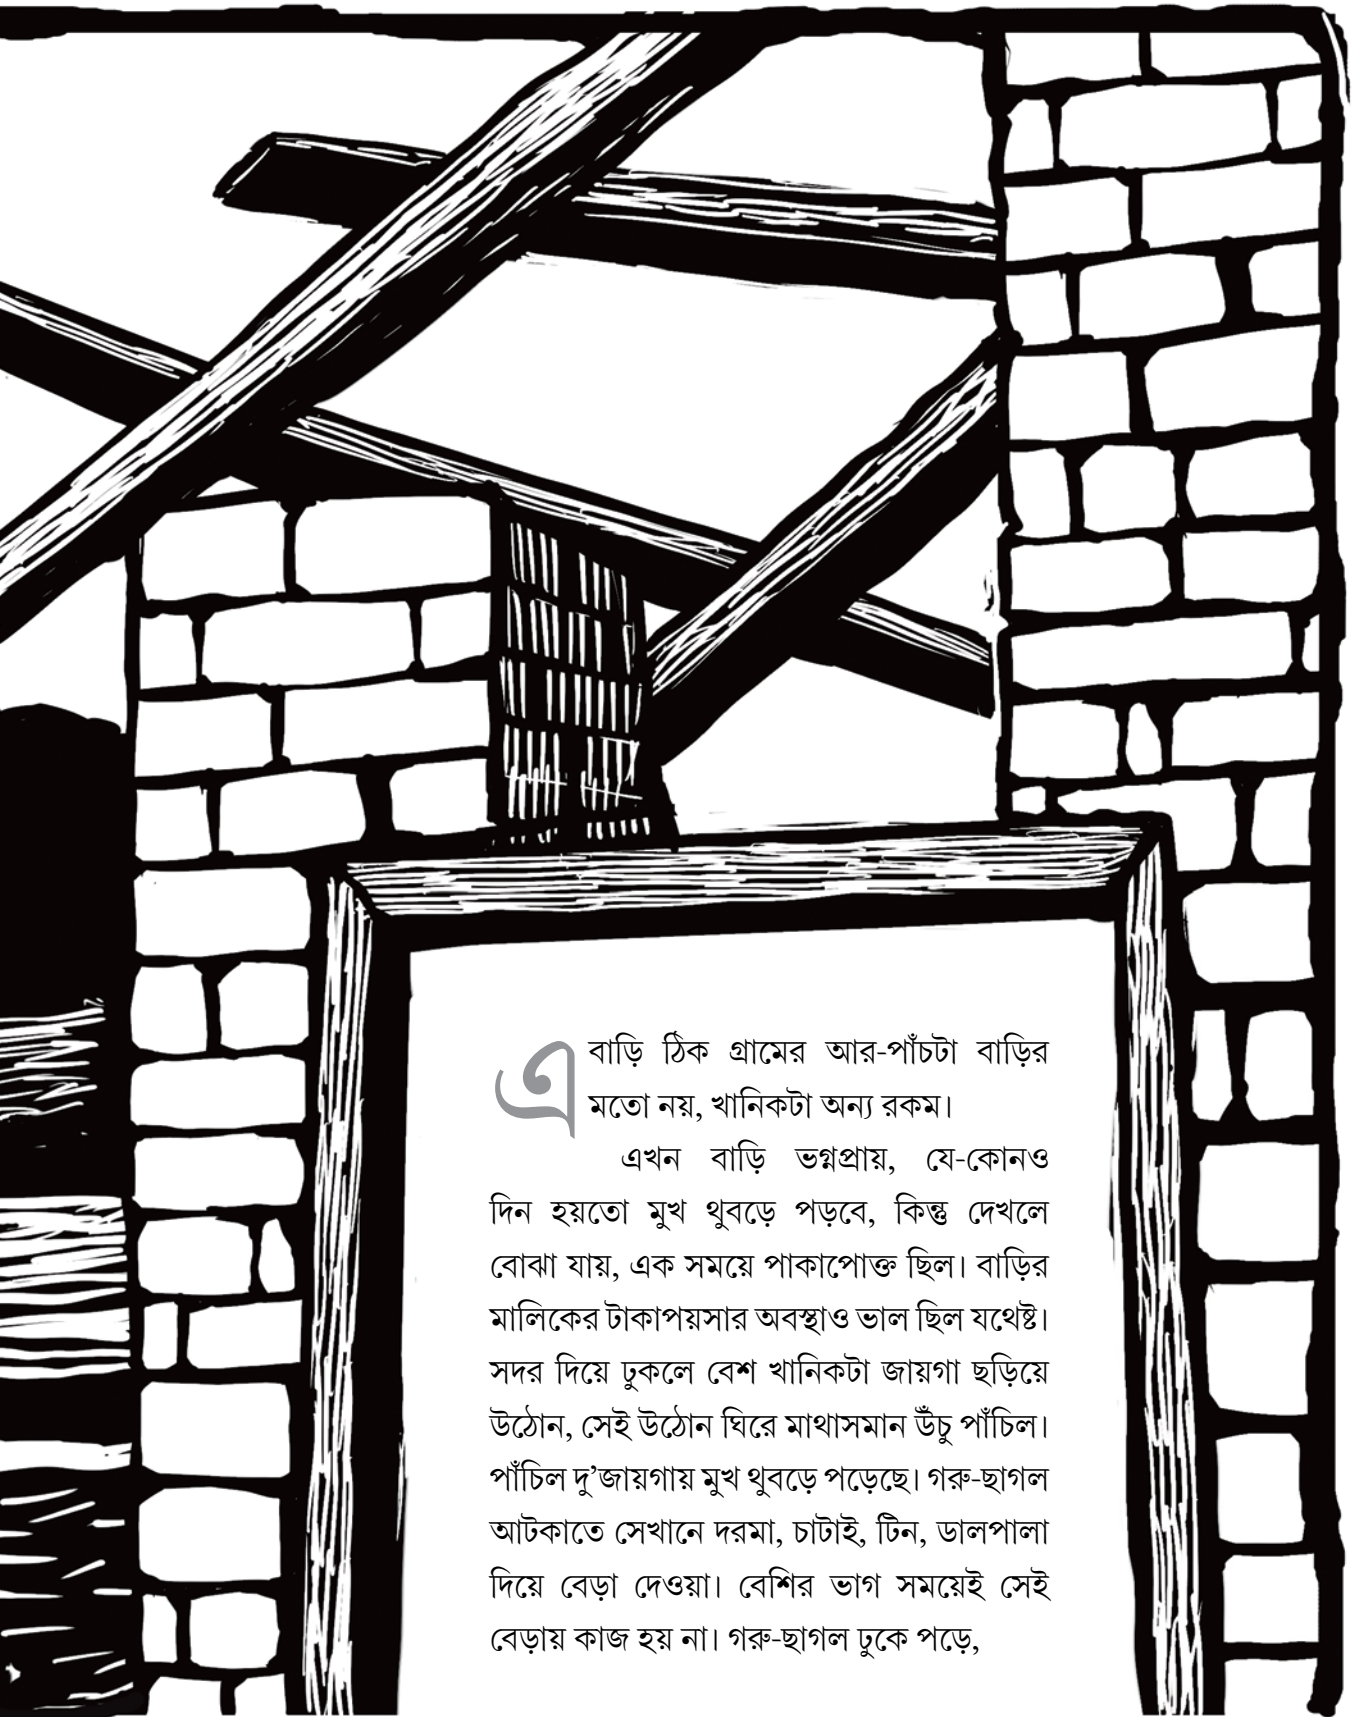 এ বাড়ি ঠিক গ্রামের আর-পাঁচটা বাড়ির
মতো নয়, খানিকটা অন্য রকম।
এখন বাড়ি ভগ্নপ্রায়, যে-কোনও
দিন হয়তো মুখ থুবড়ে পড়বে, কিন্তু দেখলে
বোঝা যায়, এক সময়ে পাকাপোক্ত ছিল। বাড়ির
মালিকের টাকাপয়সার অবস্থাও ভাল ছিল যথেষ্ট।
সদর দিয়ে ঢুকলে বেশ খানিকটা জায়গা ছড়িয়ে
উঠোন, সেই উঠোন ঘিরে মাথাসমান উঁচু পাঁচিল।
পাঁচিল দু’জায়গায় মুখ থুবড়ে পড়েছে। গরু-ছাগল
আটকাতে সেখানে দরমা, চাটাই, টিন, ডালপালা
দিয়ে বেড়া দেওয়া। বেশির ভাগ সময়েই সেই
বেড়ায় কাজ হয় না। গরু-ছাগল ঢুকে পড়ে,